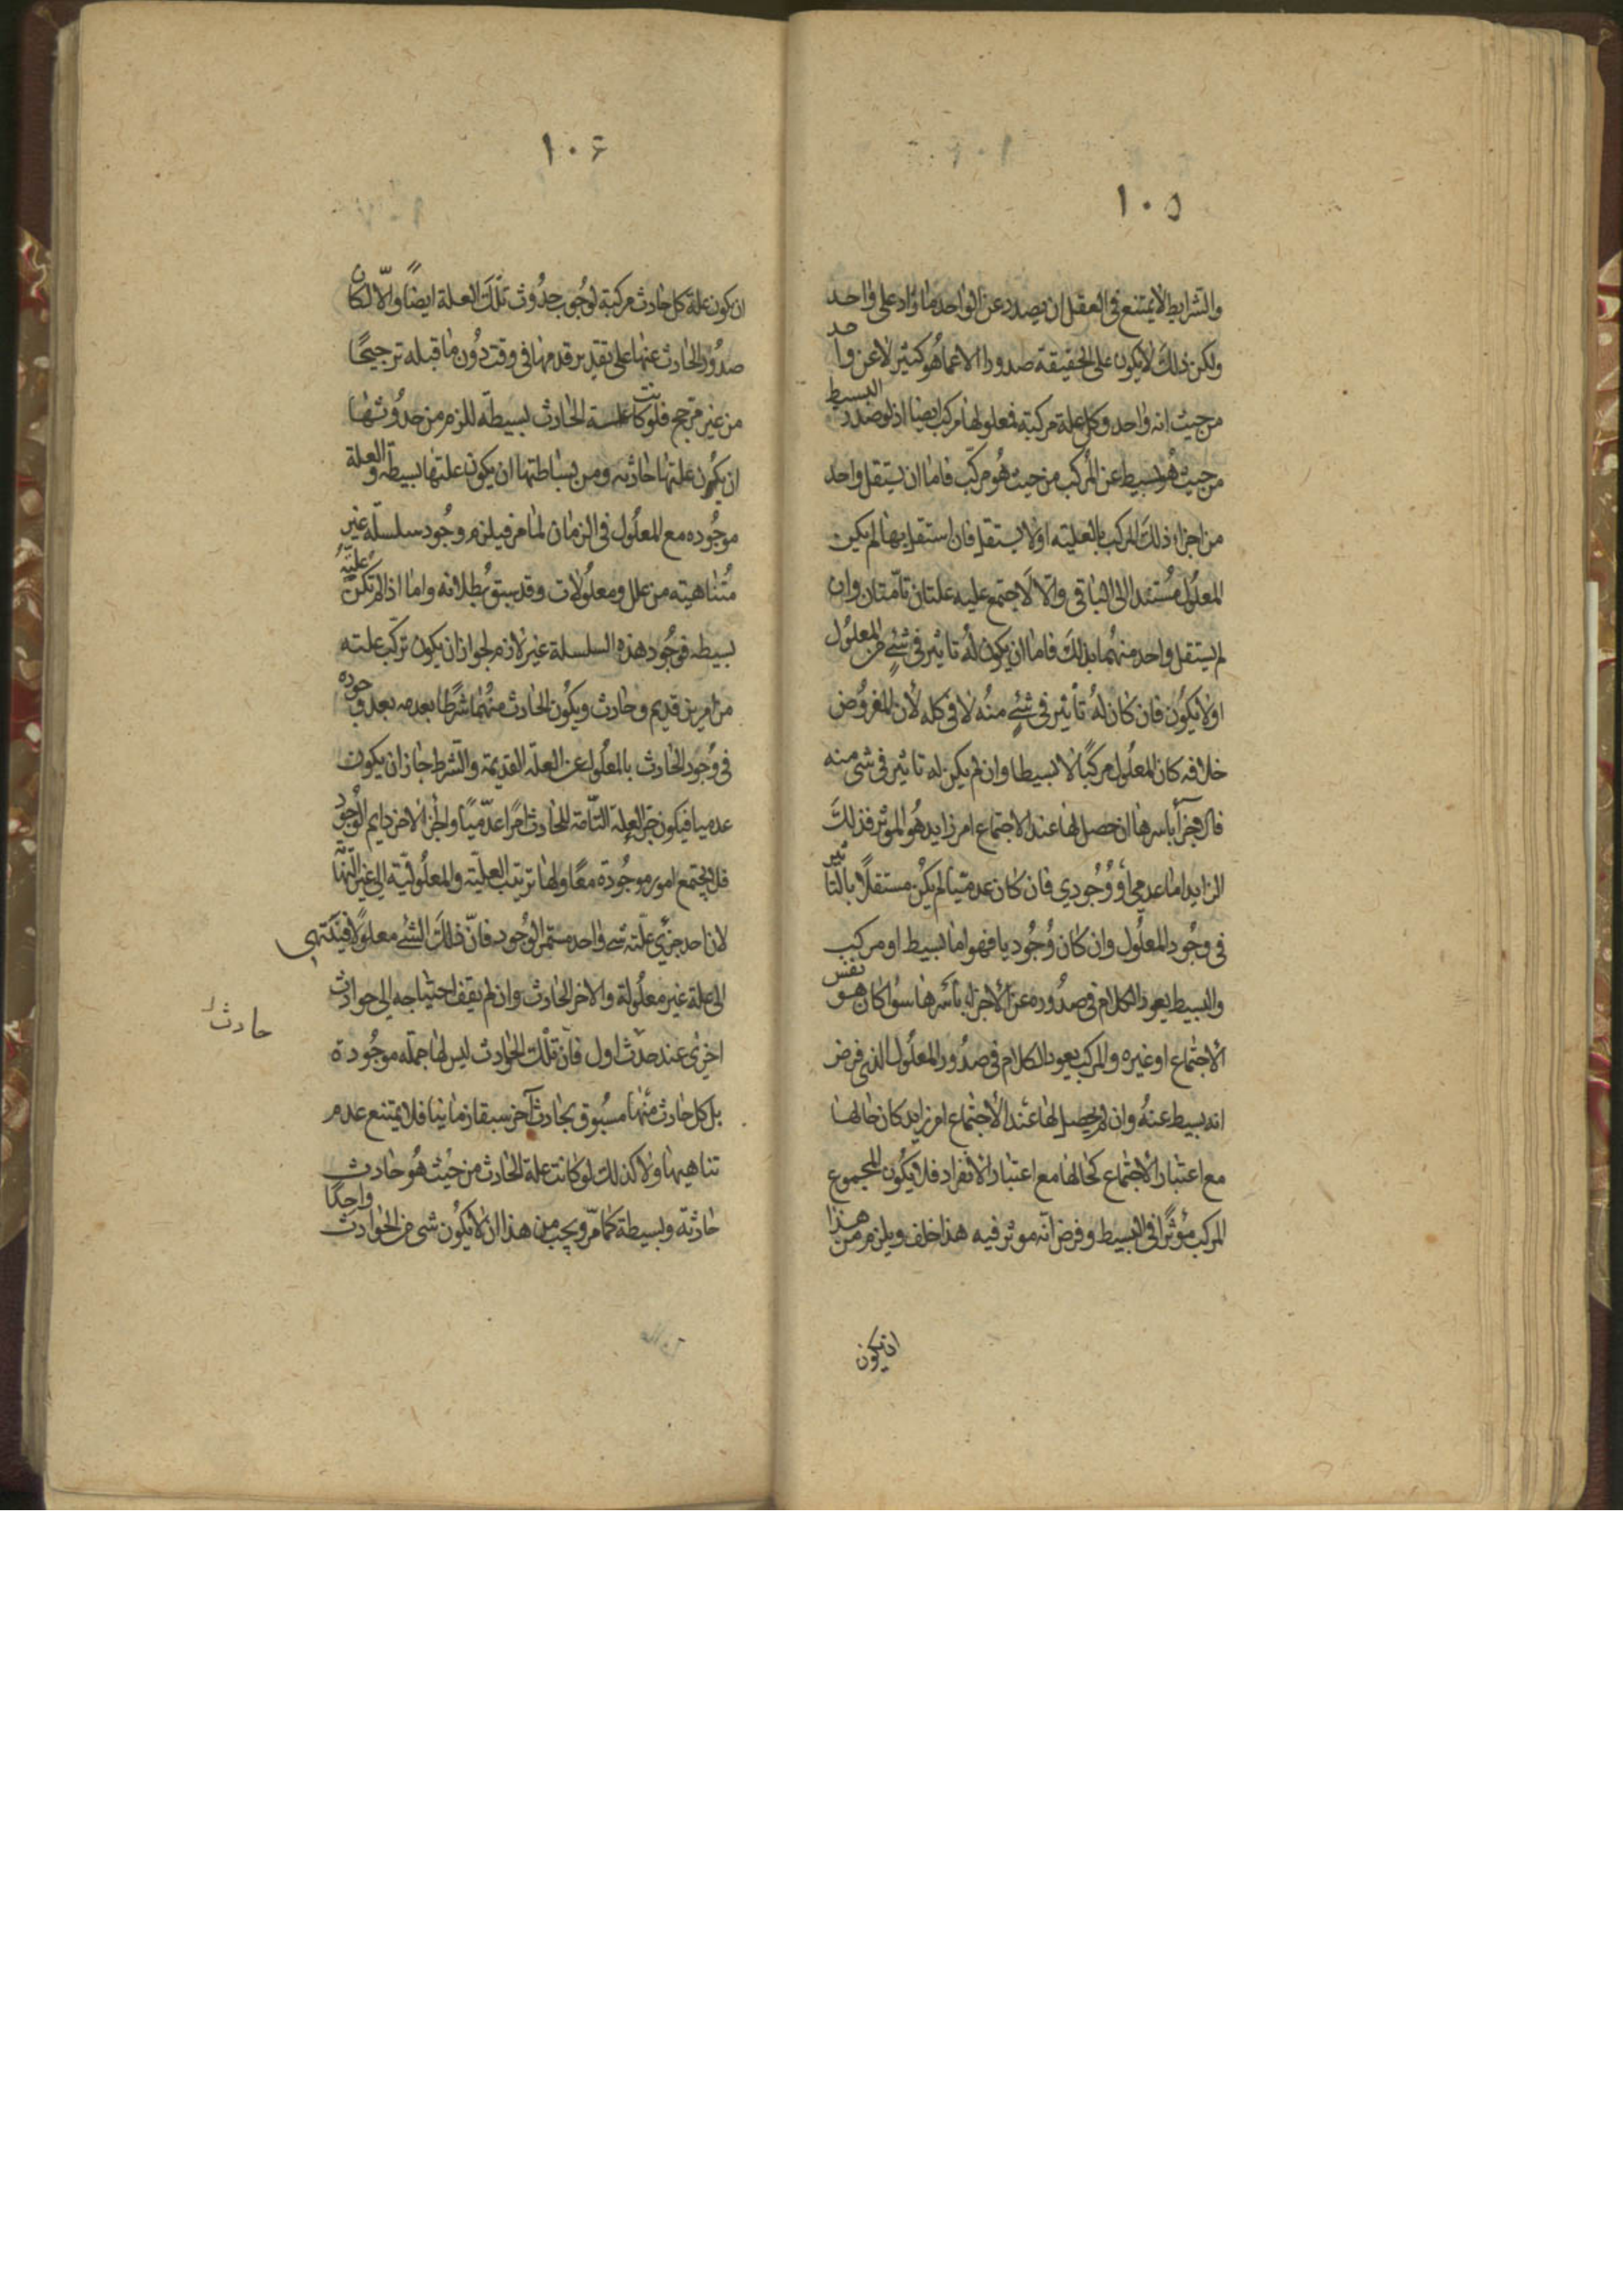 ١٠٥
والشرايط لا يمتنع في العقل ان يصدر عن الواحد ما زاد على واحد
ولكن ذلك لا يكون على الحقيقة صدورا الا عما هو كثير لا عن واحد
من حيث انه واحد وكل علة مركبة فمعلولها مركب ايضا اذ لو صدر البسيط
من حيث هو بسيط عن المركب من حيث هو مركب فاما ان يستقل واحد
من اجزاء ذلك المركب بالعلية اولا يستقل فان استقل بها لم يكن
المعلول مستندا الى الباقي والا لاجتمع عليه علتان تامتان وان
لم يستقل واحد منهما بذلك فاما ان يكون له تاثير في شئ من المعلول
اولا يكون فان كان له تأثير في شئ منه لا في كله لأن المفروض
خلافه كان المعلول مركبا لا بسيطا وان لم يكن له تاثير في شئ منه
فالاجزآ باسرها ان حصل لها عند الاجتماع امر زايد هو الموثر فذلك
الزايد اما عدمي أو وجودي فان كان عدميا لم يكن مستقلا بالتاثير
في وجود المعلول وان كان وجوديا فهو اما بسيط او مركب
والبسيط يعود الكلام في صدوره عن الأجزاء بأسرها سوا كان هو نفس
الاجتماع او غيره والمركب يعود الكلام في صدور المعلول الذي فرض
انه بسيط عنه وان لم يحصل لها عند الأجتماع امر زايد كان حالها
مع اعتبار الأجتماع كحالها مع اعتبار الانفراد فلا يكون المجموع
المركب مؤثرا في البسيط وفرض أنه موثر فيه هذا خلف ويلزم من هذا
ان يكون
١٠٦
ان يكون علة كل حادث مركبة لوجوب حدوث تلك العلة ايضا والا لكان
صدور الحادث عنها على تقدير قدمها في وقت دون ما قبله ترجيحا
من غير مرجح فلو كانت علة الحادث بسيطة للزم من حدوثها
ان يكون علتها حادثه ومن بساطتها ان يكون علتها بسيطة والعلة
موجوده مع المعلول في الزمان لما مر فيلزم وجود سلسلة غير
متناهية من علل ومعلولات وقد سبق بطلانه واما اذا لم تكن علته
بسيطه فوجود هذه السلسلة غير لازم لجواز ان يكون تركب علته
من امرين قديم وحادث ويكون الحادث منهما شرطا بعدمه بعد وجوده
في وجود الحادث بالمعلول عن العلة القديمة والشرط جاز ان يكون
عدميا فيكون جزء العلة التامة للحادث امرا عدميا والجزء الاخر دايم الوجود
فلا يجتمع امور موجودة معا ولها ترتب العلية والمعلولية الى غير النهاية
لان احد جزئي علته شئ واحد مستمر الوجود فان ذلك الشئ معلولا فينتهي
الى علة غير معلولة والاخر الحادث وان لم يقف احتياجه الى حوادث
اخرى عند حدث اول فان تلك الحوادث ليس لها جملة موجودة
حادث
بل كل حادث منها مسبوق بحادث آخر سبقا زمانيا فلا يمتنع عدم
تناهيها ولا كذلك لو كانت علة الحادث من حيث هو حادث
حادثة وبسيطة كما مر ويجب من هذا ان لا يكون شئ من الحوادث واجبا